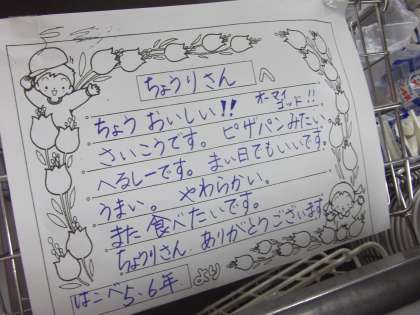 ちょうりさん へ
ちょうおいしい!! オーマイゴッド!!
さいこうです。ピザパンみたい。
へるしーです。まい日でもいいです。
うまい。やわらかい。
また食べたいです。
ちょうりさん ありがとうございます
はこべ5.6年 より